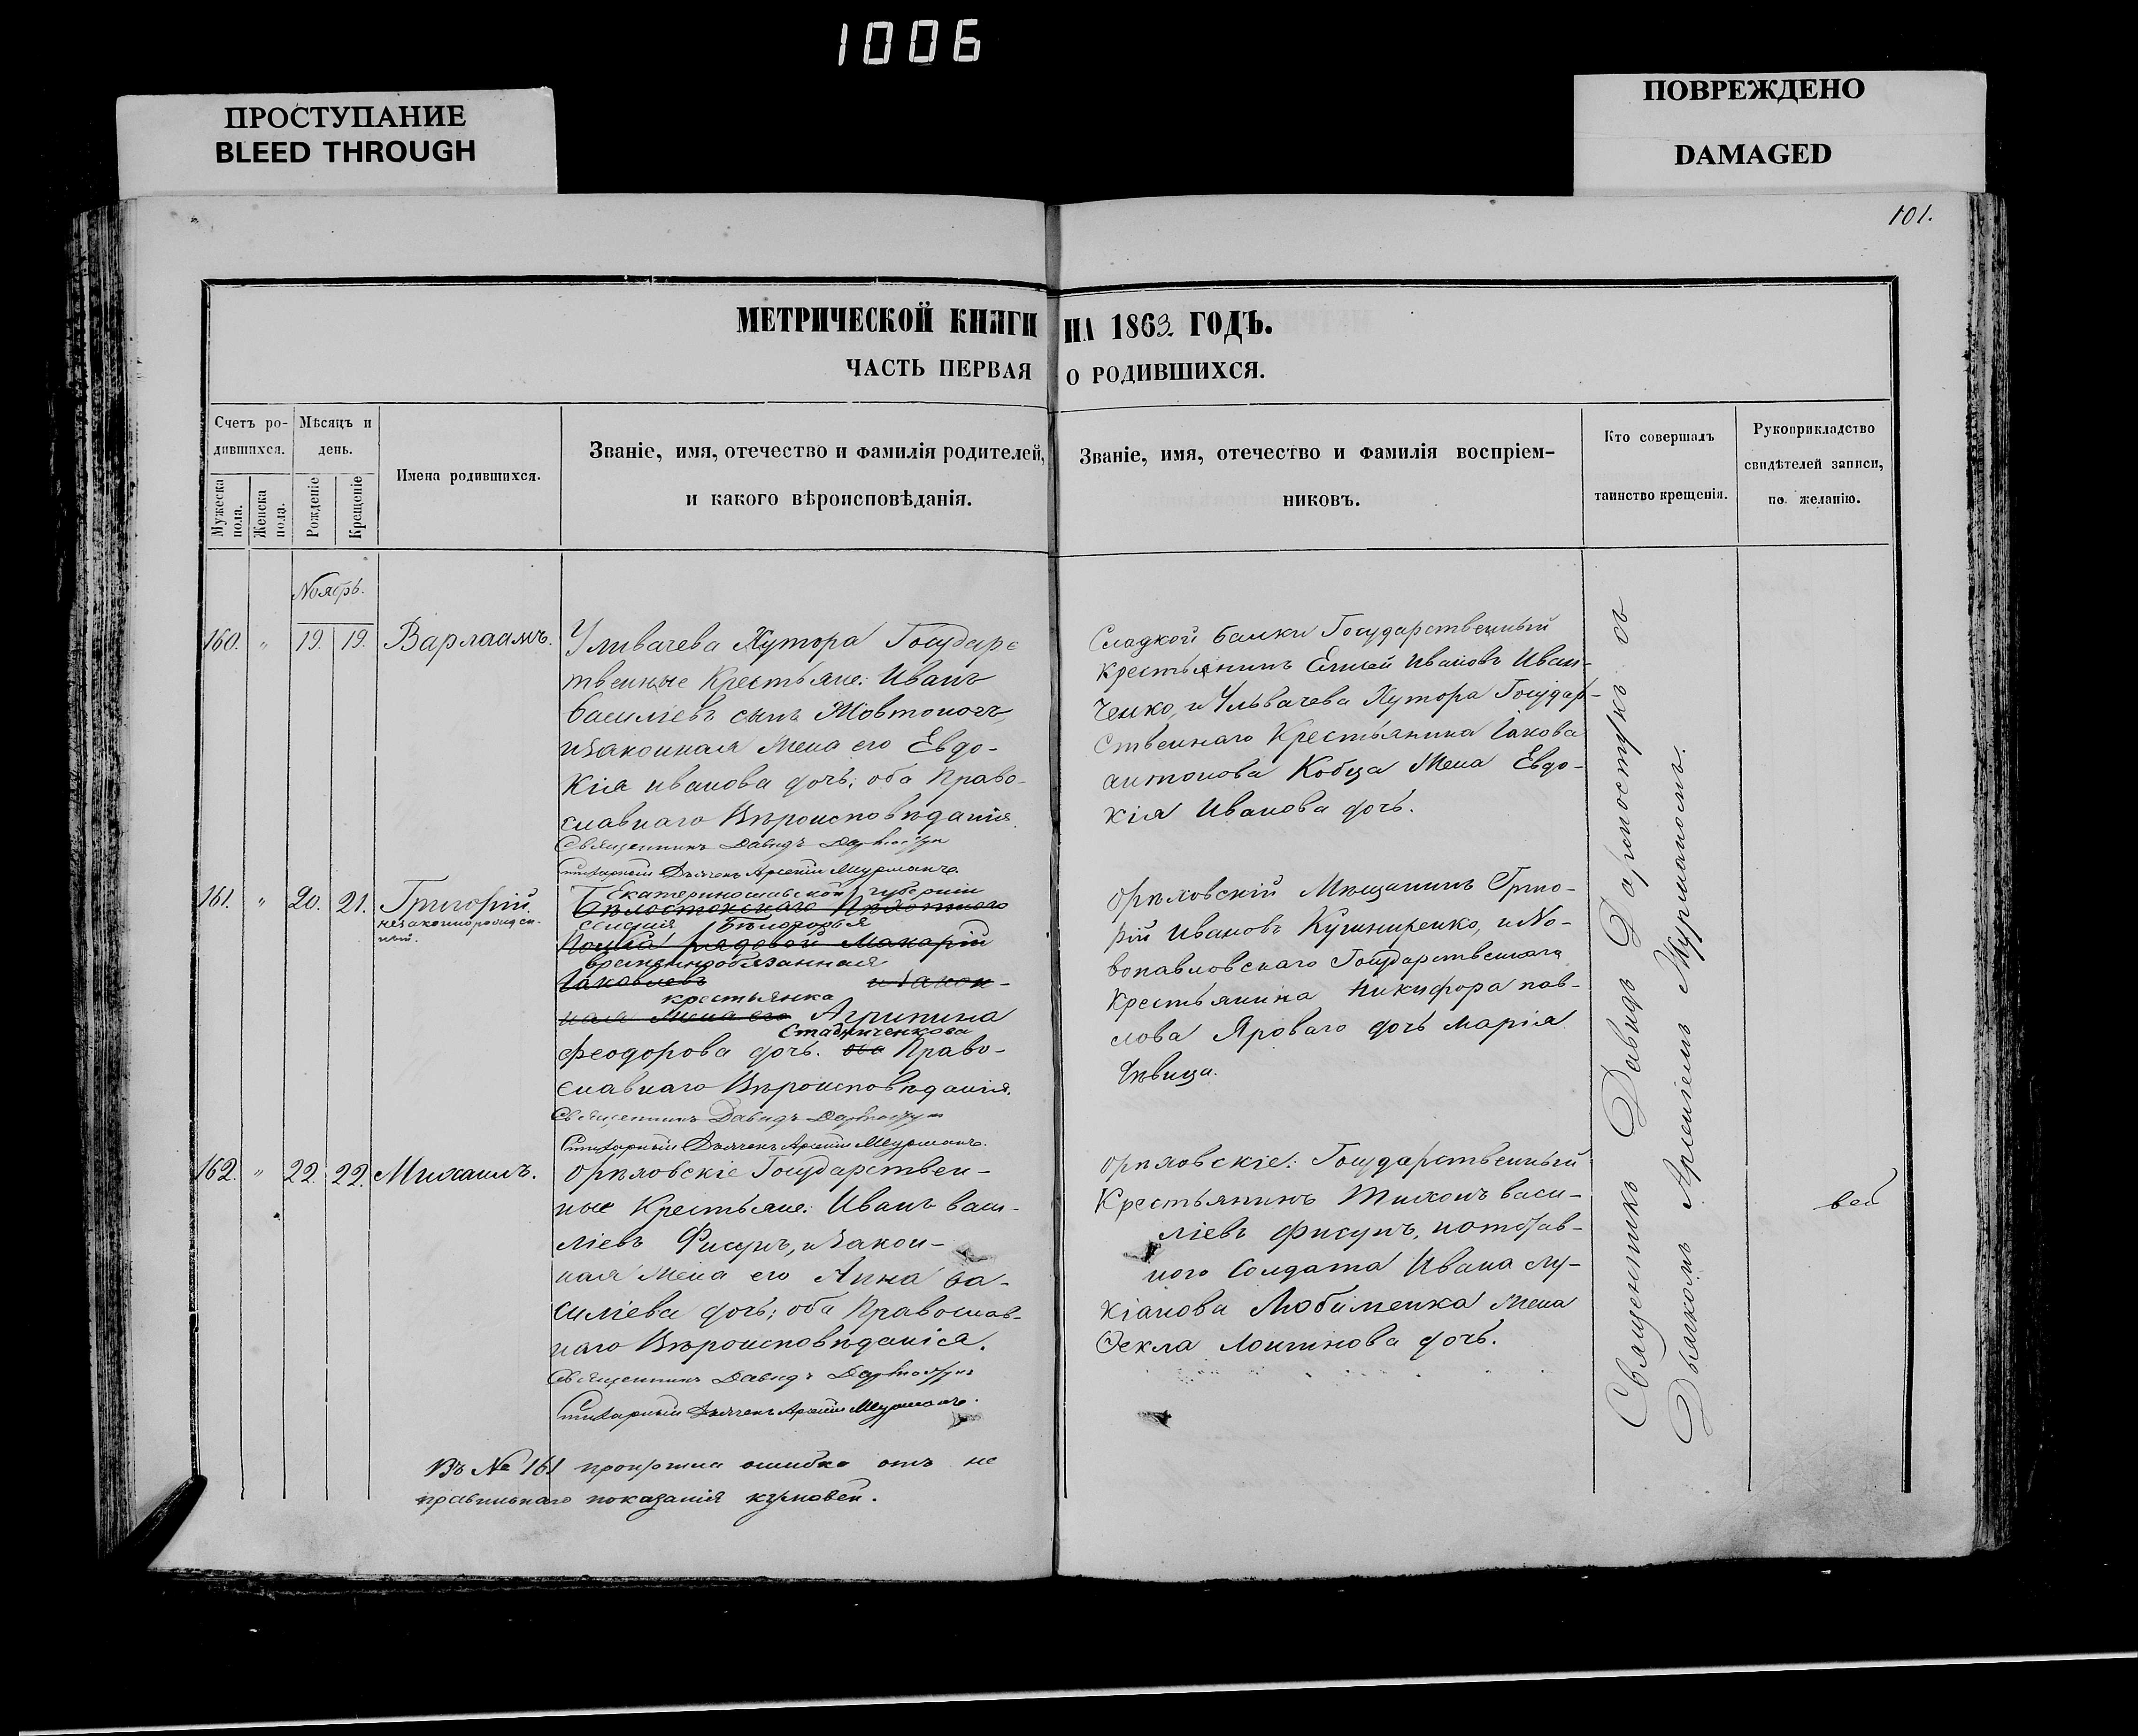 1006
ПРОСТУПАНИЕ
BLEED THROUGH
ПОВРЕЖДЕНО
DAMAGED
101.
МЕТРИЧЕСКОЙ КНИГИ НА 1863 ГОДЪ.
ЧАСТЬ ПЕРВАЯ О РОДИВШИХСЯ.
Счетъ ро-
дившихся.
Мужеска
пола.
Женска
пола.
Мѣсяцъ и
день.
Рожденіе
Крещеніе
Имена родившихся.
Званіе, имя, отечество и фамилія родителей,
и какого вѣроисповѣданія.
Званіе, имя, отечество и фамилія воспріем-
никовъ.
Кто совершалъ
таинство крещенія.
Рукоприкладство
свидѣтелей записи,
по желанію.
Ноябрь.
160. " 19. 19. Варлаамъ.
Уливачева Хутора Государс
твенные Крестьяне: Иванъ
Василіевъ сынъ Жовтоногъ,
и Законная Жена его Евдо-
кія Иванова дочь; оба Право-
славнаго Вѣроисповѣданія.
Священникъ Давидъ
Стихарный Дьячекъ Арсеній Мурманъ.
Сладкой Балки Государственный
крестьянинъ Елисей Ивановъ Иван-
ченко, и Ульвачева Хутора Государ-
ственнаго Крестьянина Іакова
Антонова Кобца Жена Евдо-
кія Иванова дочь.
161. " 20. 21. Григорій.
незаконнорожден-
ный.
Екатеринославской губерніи
Бѣлостокскаго Пѣхотнаго
селенія Бѣлогорья
Полка рядовой Макарій
временнообязанная
Іаковлевъ и Закон-
крестьянка
ная Жена его Агрипина
Стадниченкова
Феодорова дочь. оба Право-
славнаго Вѣроисповѣданія.
Священникъ Давидъ
Стихарный Дьячекъ Арсеній Мурманъ.
Орѣховскій Мѣщанинъ Григо-
рій Ивановъ Кушниренко, и Но-
вопавловскаго Государственнаго
Крестьянина Никифора Пав-
лова Яроваго дочь Марія
Дѣвица.
162. " 22. 22. Михаилъ.
Орѣховскіе Государствен-
ные Крестьяне: Иванъ Васи-
ліевъ Фисунъ, и Закон-
ная Жена его Анна Ва-
силіева дочь; оба Православ-
наго Вѣроисповѣданія.
Священникъ Давидъ
Стихарный Дьячекъ Арсеній Мурманъ.
Орѣховскіе: Государственный
Крестьянинъ Тихонъ Васи-
ліевъ Фисунъ, и отстав-
ного Солдата Ивана Лу-
кіанова Любименка Жена
Ѳекла Логинова дочь.
Священникъ Давидъ съ
Дьячкомъ Арсеніемъ Мурманомъ.
Въ № 161 произошла ошибка отъ не
правильнаго показанія кумовей.